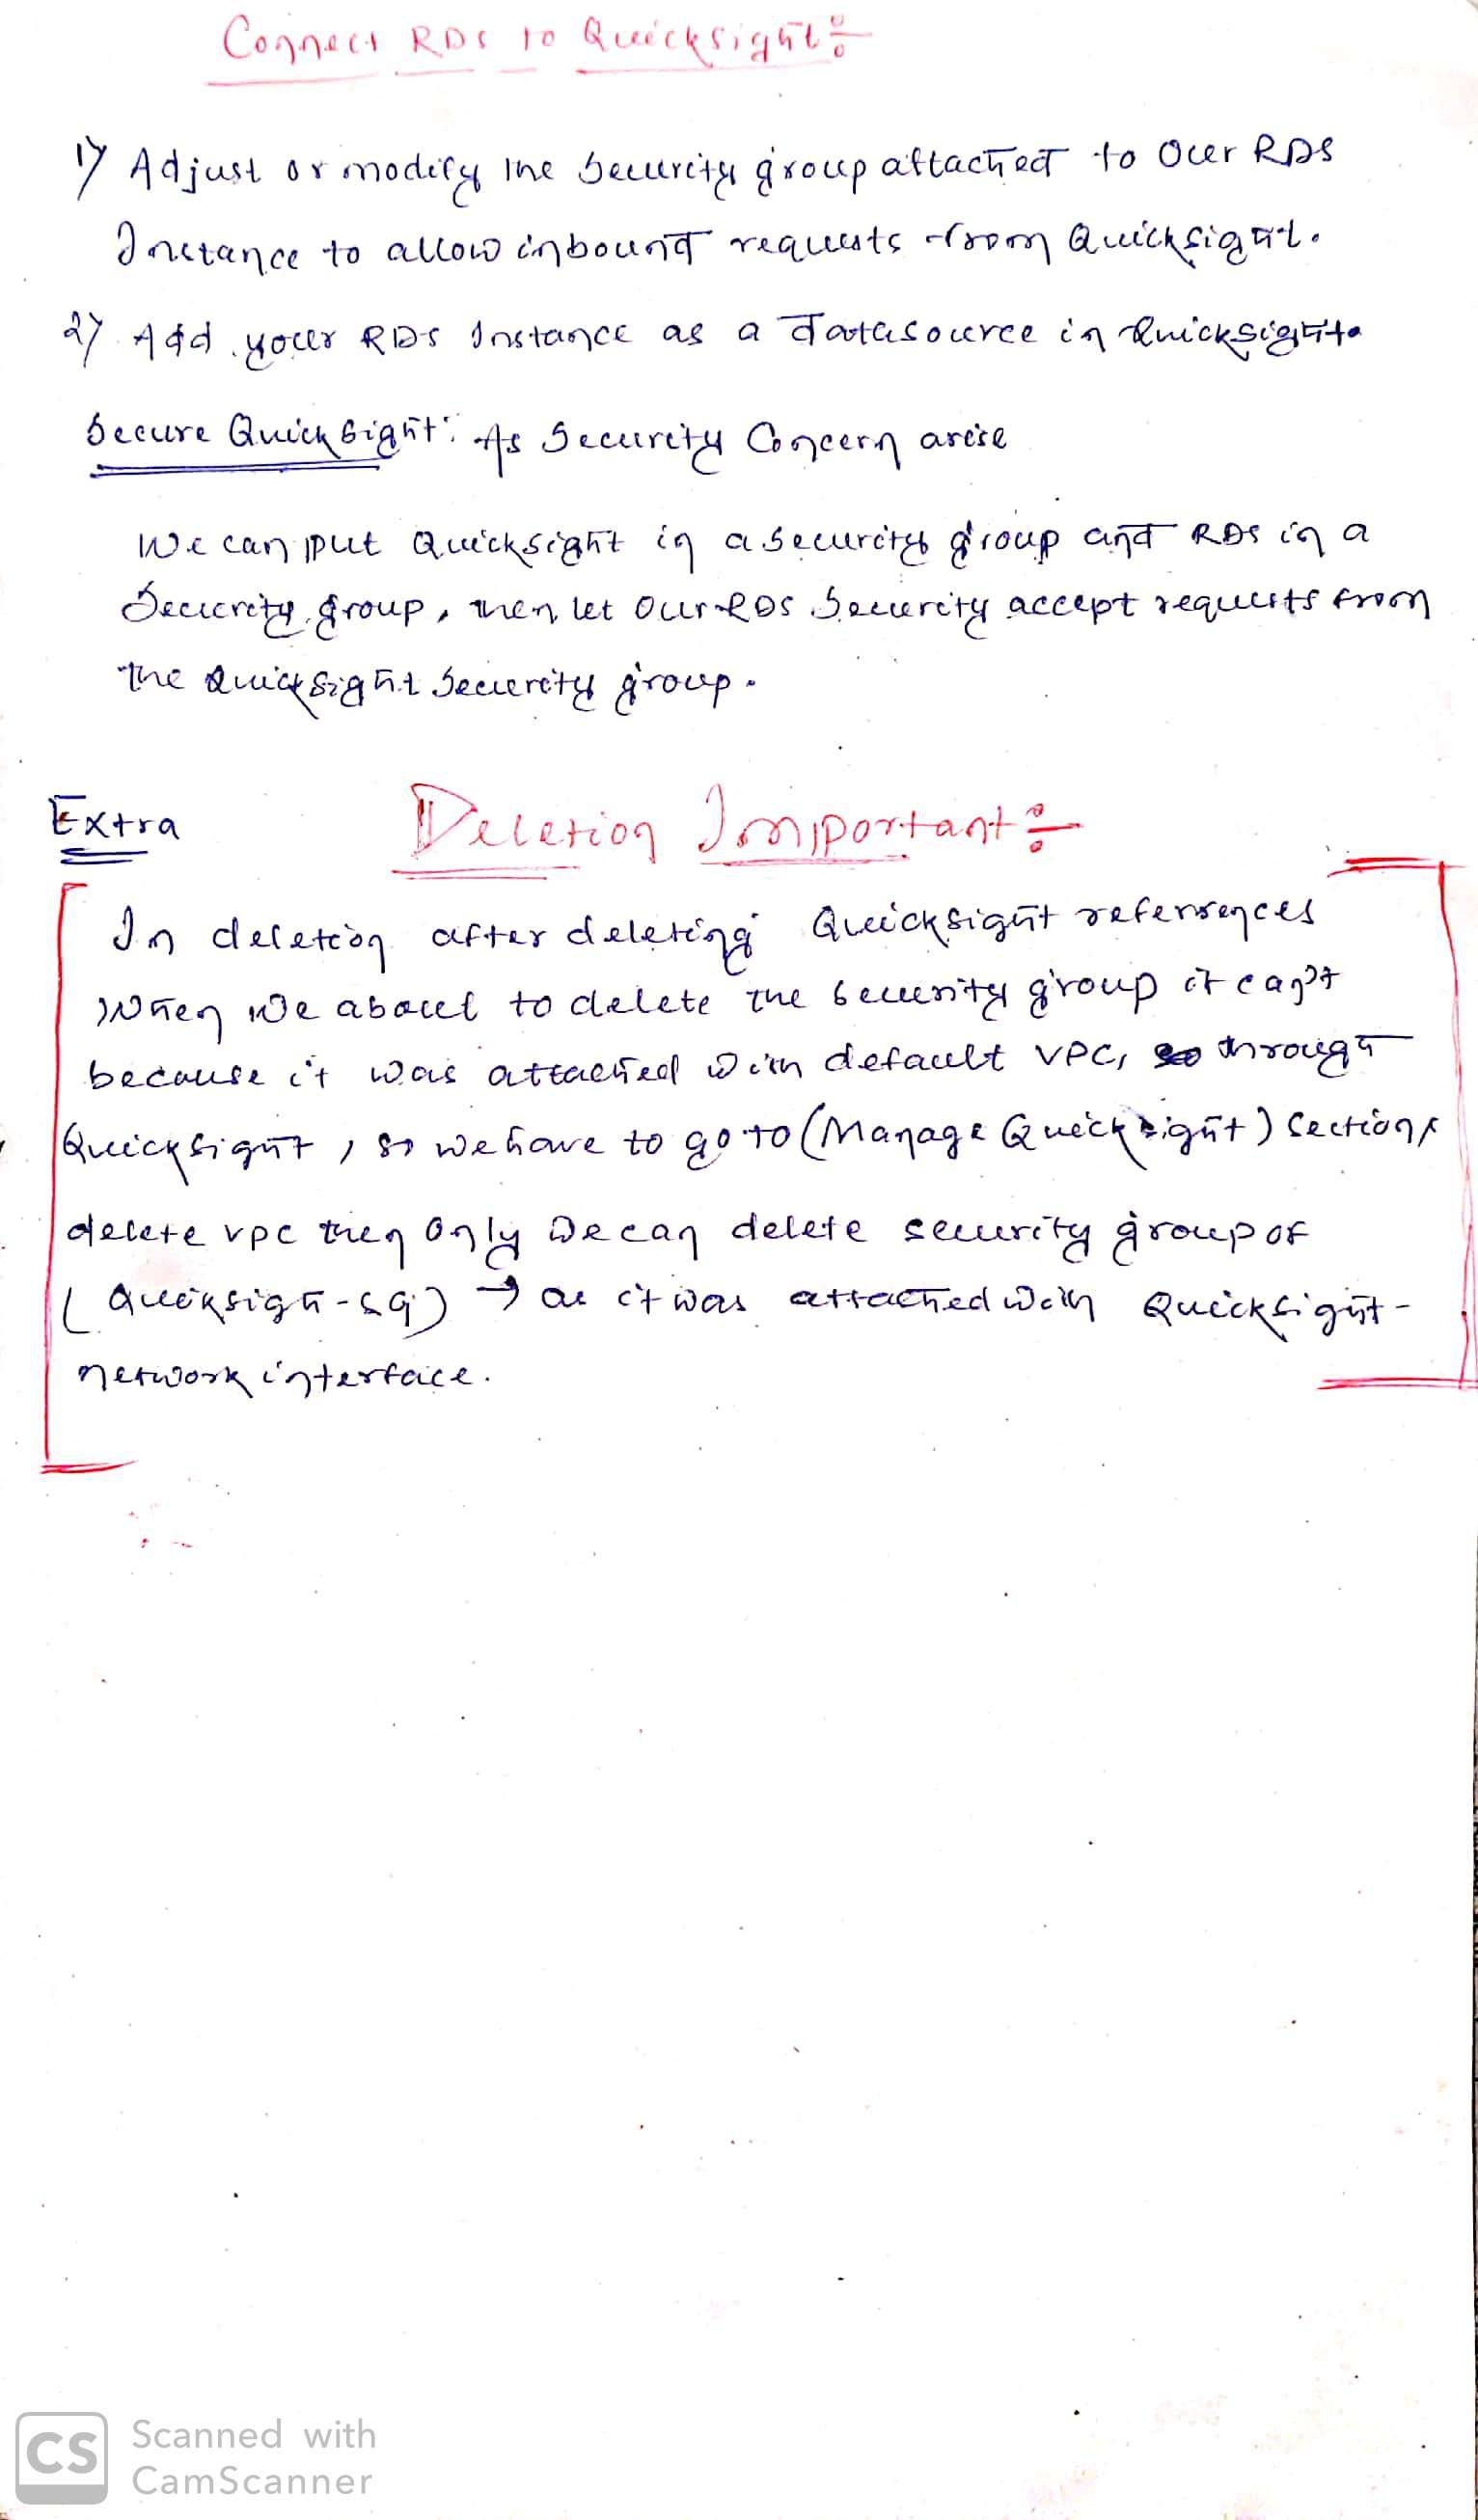 Connect RDS to Quicksight:
1) Adjust or modify the Security group attached to Our RDS
Instance to allow inbound requests from Quicksight.
2) Add your RDS Instance as a datasource in Quicksight.
Secure Quicksight: As Security Concern arise
We can put Quicksight in a security group and RDS in a
Security group, then let Our RDS Security accept requests from
the Quicksight Security group.
Extra
Deletion Important:
In deletion after deleting Quicksight references
When We about to delete the security group it can't
because it was attached with default VPC, through
Quicksight, so we have to go to (Manage Quicksight) Section
delete vpc then Only We can delete security group of
(Quicksigh-sg) → as it was attached with Quicksight-
network interface.
CS
Scanned with
CamScanner